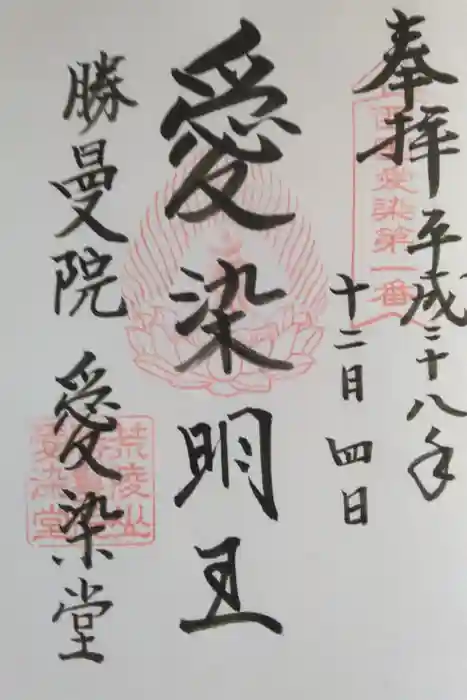 奉拝
平成二十八年
十二月四日
西国愛染第一番
愛染明王
勝曼院 愛染堂
荒陵山
愛染堂